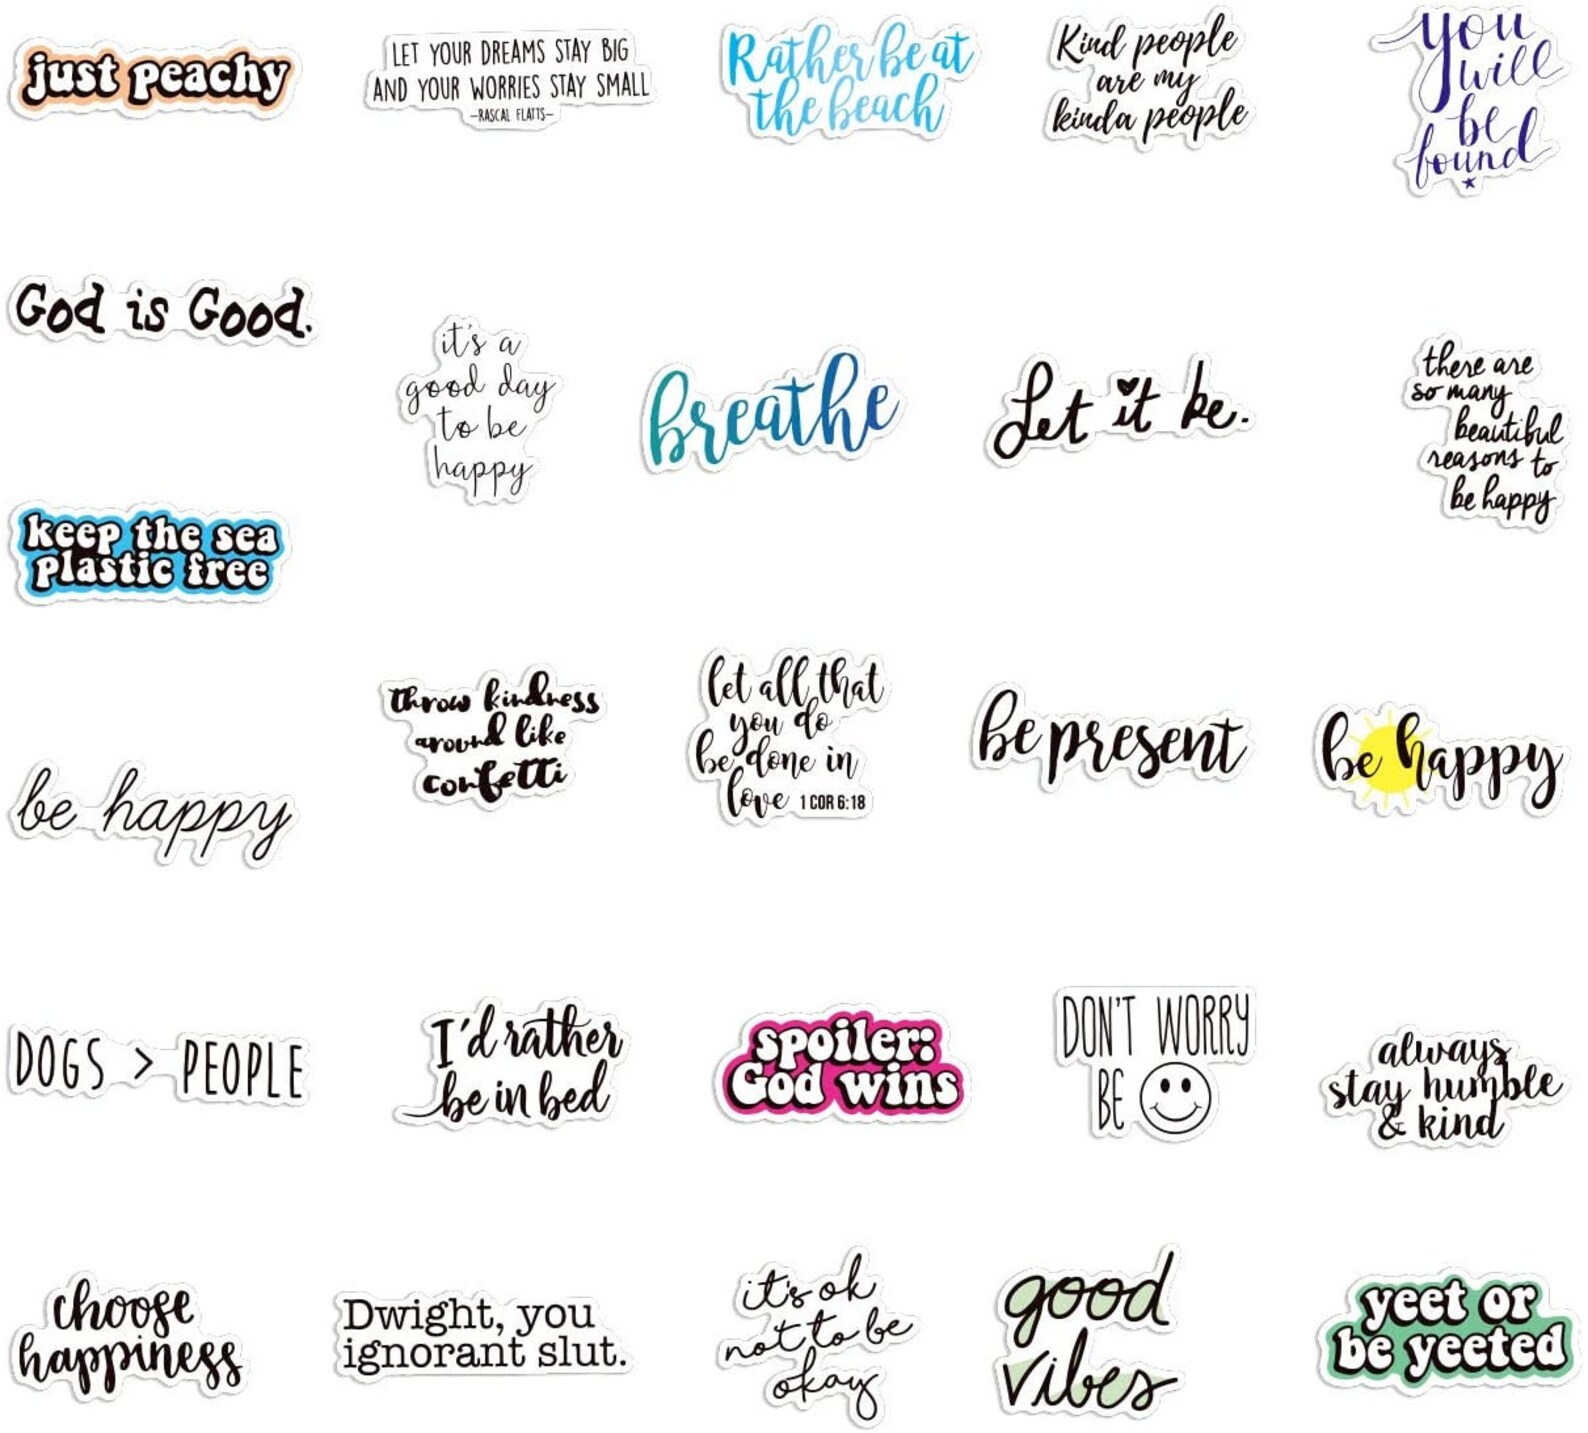 just peachy
LET YOUR DREAMS STAY BIG
AND YOUR WORRIES STAY SMALL
-RASCAL FLATTS-
Rather be at
the beach
Kind people
are my
kinda people
you
will
be
found
God is Good.
it's a
good day
to be
happy
breathe
Let it be.
there are
so many
beautiful
reasons to
be happy
keep the sea
plastic free
be happy
throw kindness
around like
confetti
let all that
you do
be done in
love 1 COR 6:18
be present
be happy
DOGS > PEOPLE
I'd rather
be in bed
spoiler:
God wins
DON'T WORRY
BE
always
stay humble
& kind
choose
happiness
Dwight, you
ignorant slut.
it's ok
not to be
okay
good
vibes
yeet or
be yeeted